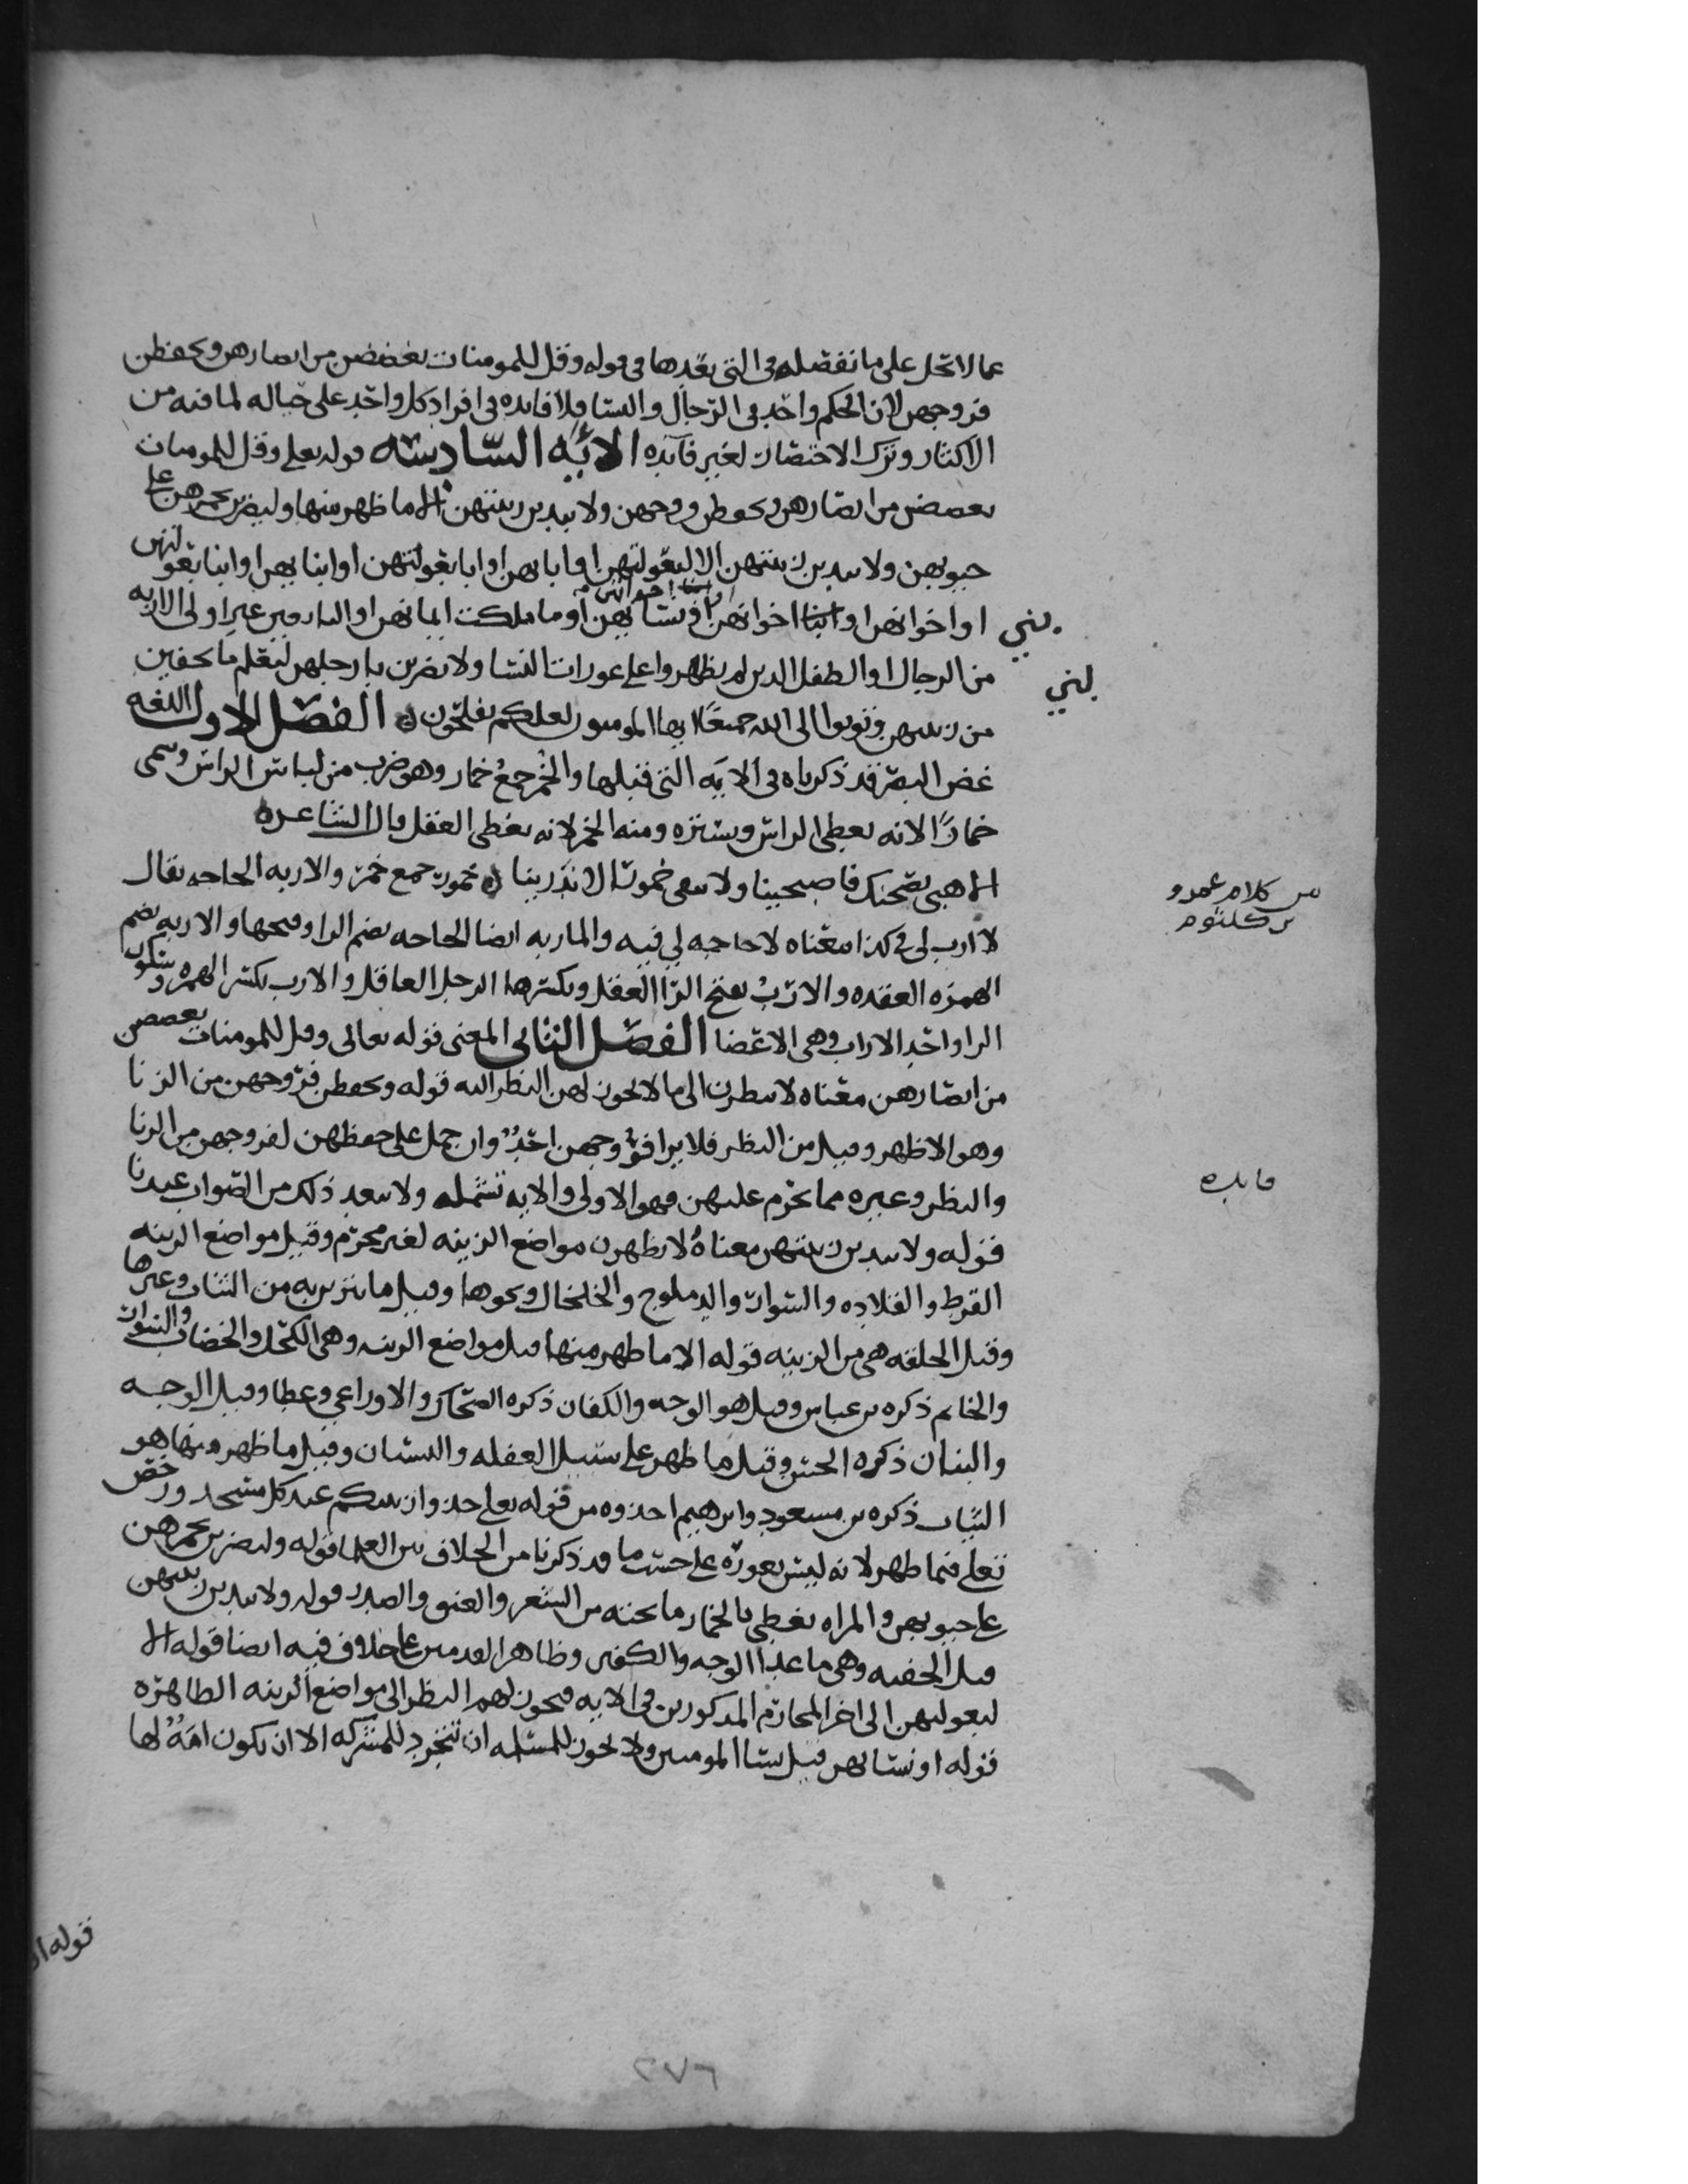 عما لا تحل على ما نفصله في التي بعدها في قوله وقل للمومنات يغضضن من ابصارهن ويحفظن
فروجهن لان الحكم واحد في الرجال والنسا فلا فايده في افراد كل واحد على حياله لما فيه من
الاكثار وترك الاختصار لغير فايده الايه السادسه قوله تعلى وقل للمومنات
يغضضن من ابصارهن ويحفظن فروجهن ولا يبدين زينتهن الا ما ظهر منها وليضربن بخمرهن على
جيوبهن ولا يبدين زينتهن الا لبعولتهن او ابايهن او ابا بعولتهن او ابنايهن او ابنا بعولتهن
او اخوانهن او بني اخوانهن او نسايهن او ما ملكت ايمانهن او التابعين غير اولى الاربه
بني
من الرجال او الطفل الذين لم يظهروا على عورات النسا ولا يضربن بارجلهن ليعلم ما يخفين
بني
من زينتهن وتوبوا الى الله جميعًا ايها المومنون لعلكم تفلحون الفصل الاول اللغه
غض البصر قد ذكرناه في الايه التي قبلها والخُمر جمعُ خمار وهو ضرب من لباس الراس وسمى
خمارًا لانه يغطي الراس ويستره ومنه الخمر لانه يغطى العقل قال الشاعر
الا هبى بصحنك فاصبحينا ولا تبقى خمور الاندرينا خمور جمع خمر والاربه الحاجه يقال
من كلام عمرو
بن كلثوم
لا ارب لي في كذا معناه لا حاجه لي فيه والماربه ايضا الحاجه بضم الرا وفتحها والاربه بضم
الهمزه العقده والارَبُ بفتح الرا العقل وبكسرها الرجل العاقل والارب بكسر الهمزه وسكون
الرا واحد الاراب وهي الاعضا الفصل الثاني المعنى قوله تعالى وقل للمومنات يغضضن
من ابصارهن معناه لا ينظرن الى ما لا يجوز لهن النظر اليه قوله ويحفظن فروجهن من الزنا
وهو الاظهر وقيل من النظر فلا يرا فروجهن احدٌ وان حمل على حفظهن لفروجهن من الزنا
والنظر وغيره مما يحرم عليهن فهو الاولى والايه تشمله ولا يبعد ذلك من الصواب عندنا
فايده
قوله ولا يبدين زينتهن معناهُ لا يظهرن مواضع الزينه لغير محرم وقيل مواضع الزينه
القرط والقلاده والسوار والدملوج والخلخال ونحوها وقيل ما تتزين به من الثياب وغيرها
وقيل الخلقه هي من الزينه قوله الا ما ظهر منها قيل مواضع الزينه وهي الكحل والخضاب والسوار
والخاتم ذكره بن عباس وقيل هو الوجه والكفان ذكره الضحاك والاوزاعي وعطا وقيل الوجه
والبنان ذكره الحسن وقيل ما ظهر على سبيل الغفله والنسيان وقيل ما ظهر منها هو
الثياب ذكره بن مسعود وابرهيم اخذوه من قوله تعلى خذوا زينتكم عند كل مسجد ورخص
تعلى فيما ظهر لانه ليس بعوره على حسب ما قد ذكرنا من الخلاف بين العلما قوله وليضربن بخمرهن
على جيوبهن والمراه تغطي بالخمار ما تحته من الشعر والعنق والصدر قوله ولا يبدين زينتهن
قيل الخفيه وهي ما عدا الوجه والكفين وظاهر القدمين على خلاف فيه ايضا قوله الا
لبعولتهن الى اخر المحارم المذكورين في الايه فيجوز لهم النظر الى مواضع الزينه الظاهره
قوله او نسايهن قيل نسا المومنين ولا يجوز للمسلمه ان تتجرد للمشركه الا ان تكون امةً لها
قوله او
٢٧٦